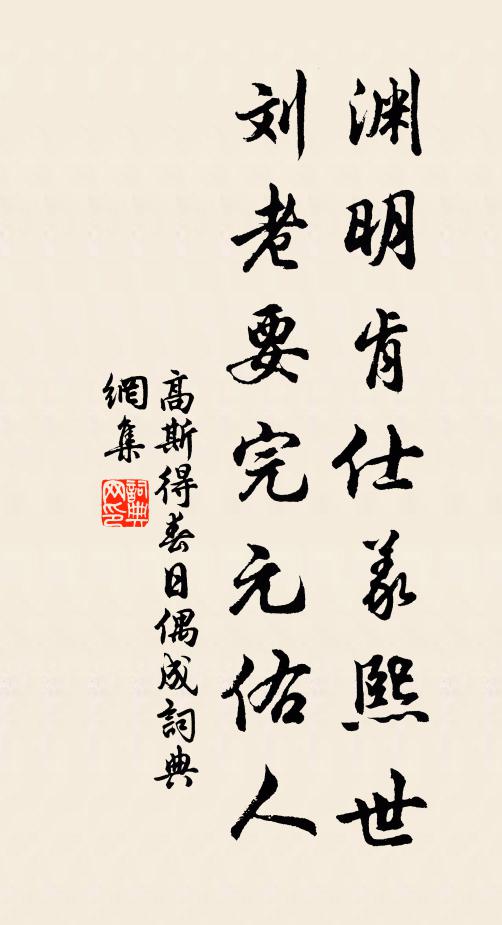 渊明肯仕义熙世
刘老要完元佑人
高斯得春日偶成詞典
網集
詞典網印